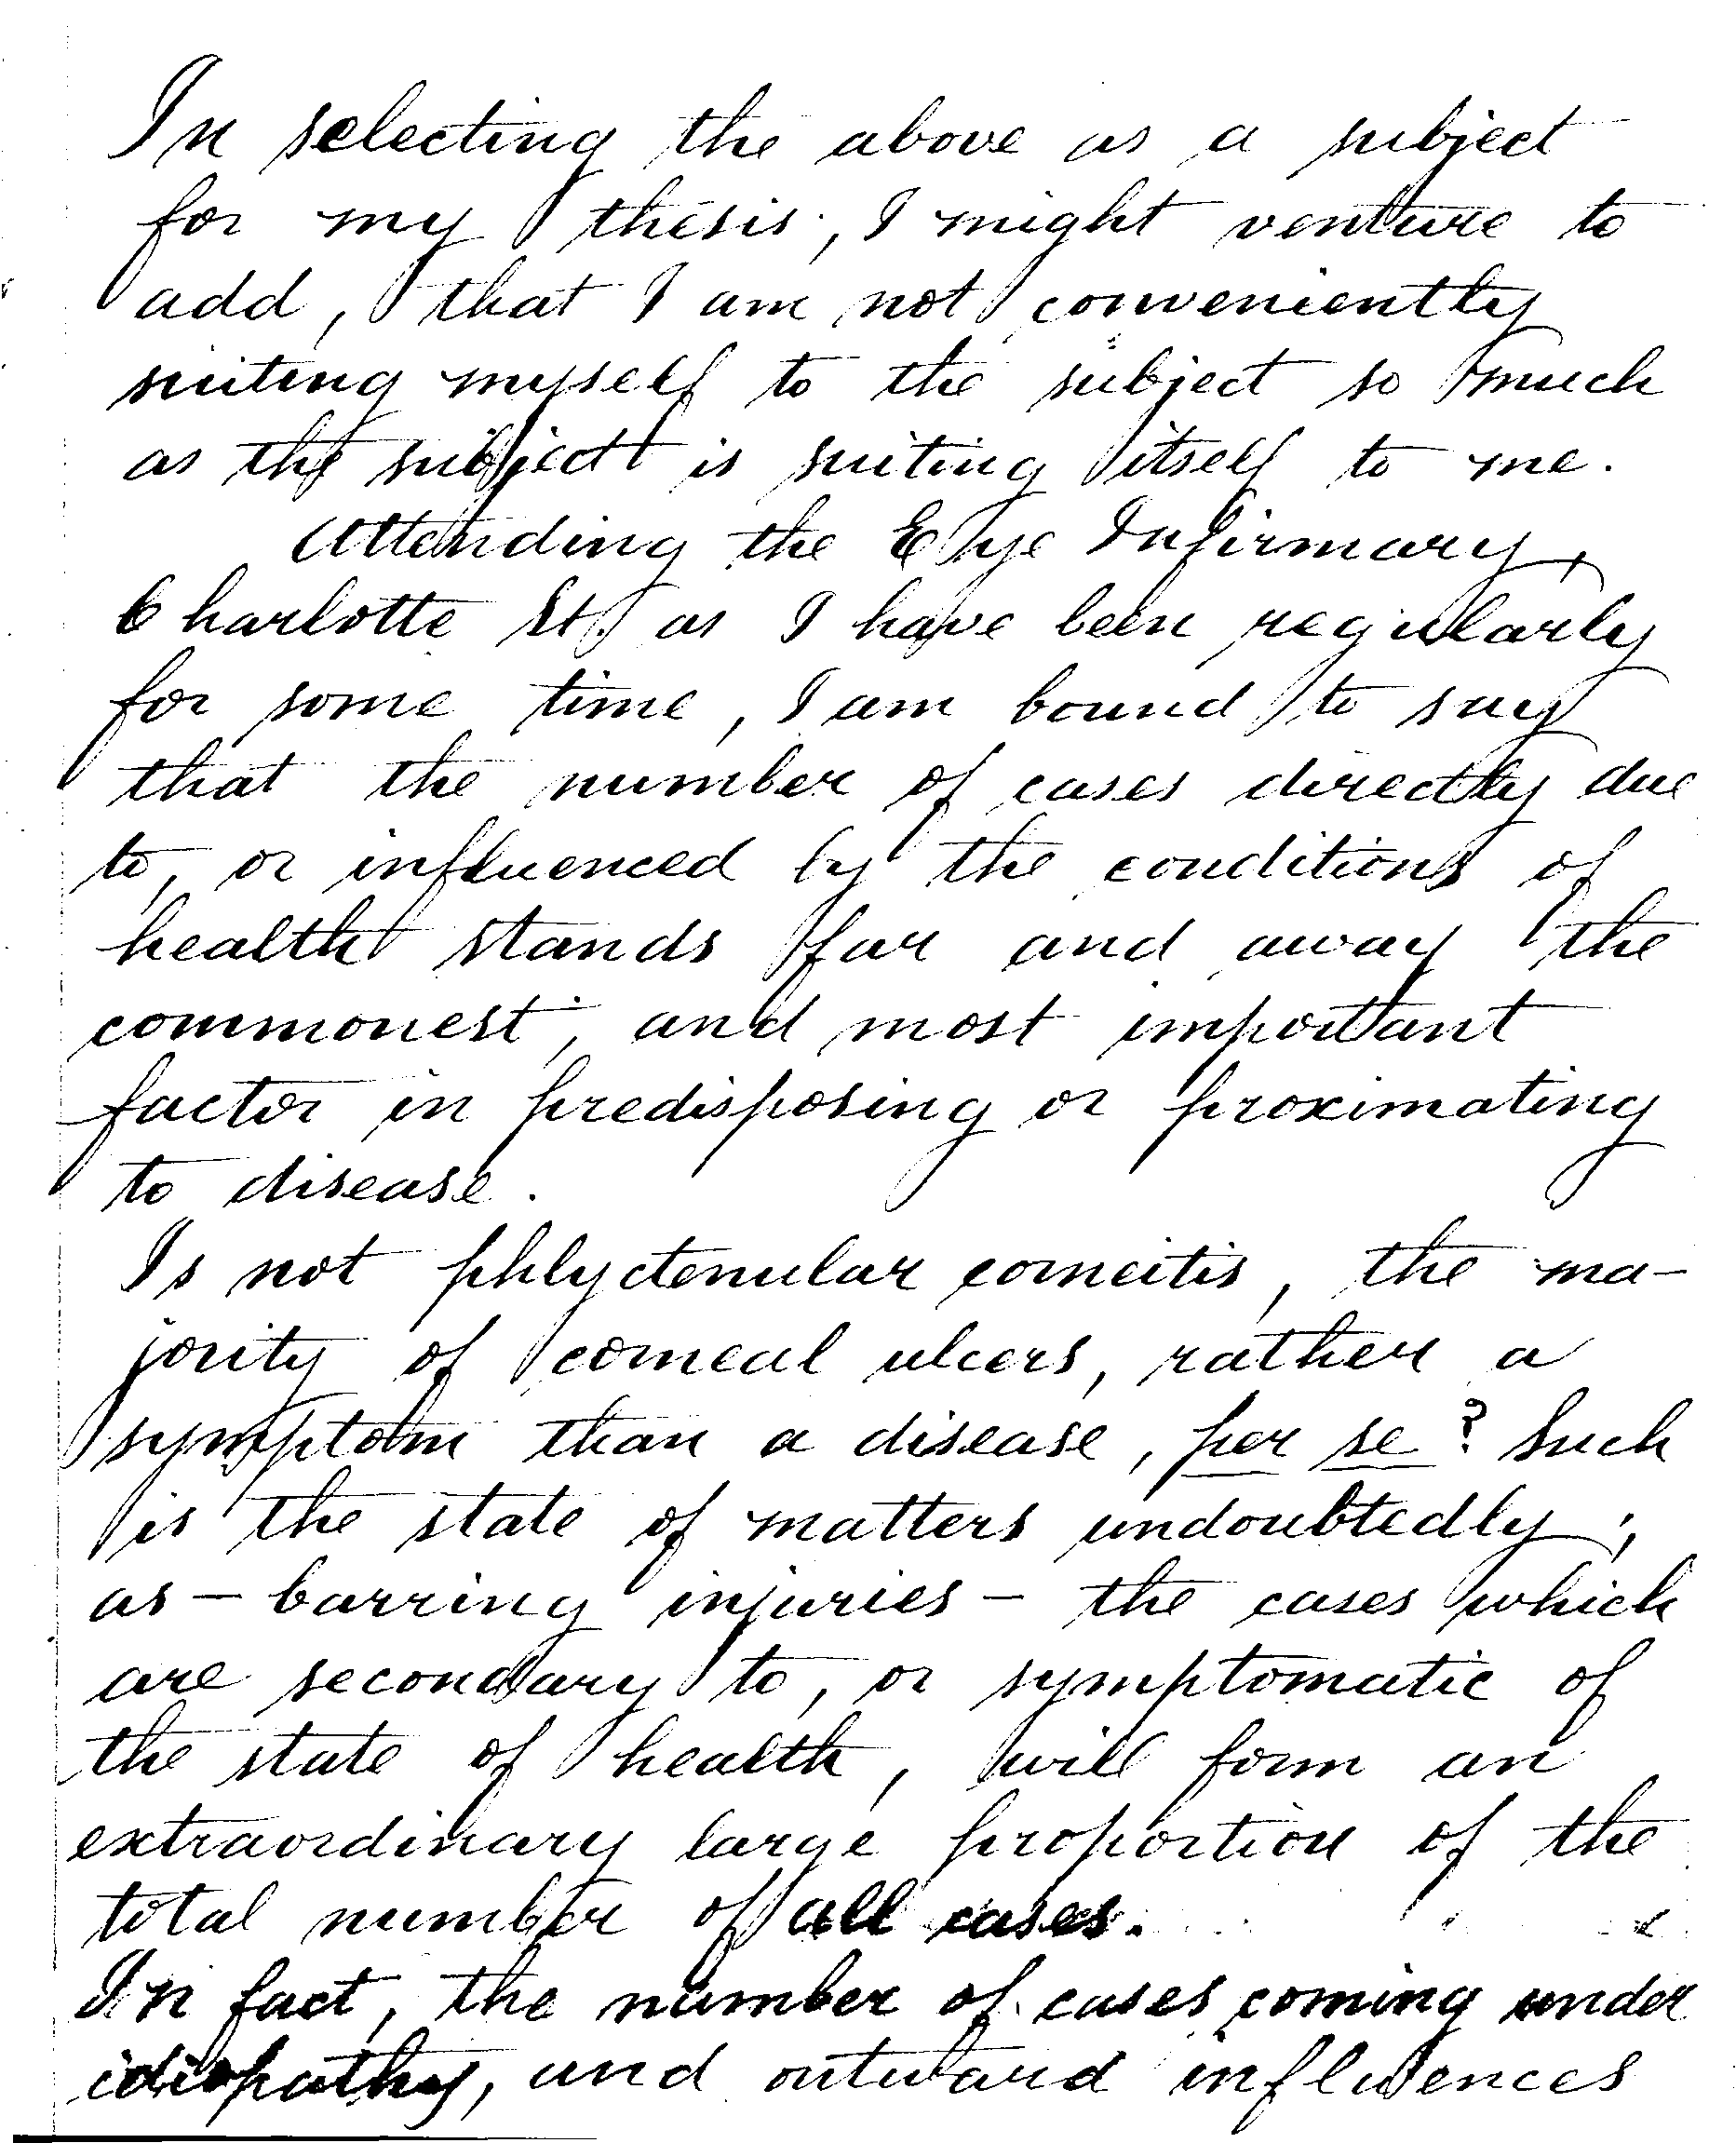 In selecting the above as a subject
for my thesis, I might venture to
add, that I am not conveniently
suiting myself to the subject so much
as the subject is suiting itself to me.
Attending the Eye Infirmary,
Charlotte St. as I have been regularly
for some time, I am bound to say
that the number of cases directly due
to, or influenced by the conditions of
health stands far and away the
commonest, and most important
factor in predisposing or proximating
to disease.
Is not phlyctenular corneitis, the ma-
jority of corneal ulcers, rather a
symptom than a disease, per se? Such
is the state of matters undoubtedly;
as - barring injuries - the cases which
are secondary to, or symptomatic of
the state of health, will form an
extraordinary large proportion of the
total number of all cases.
In fact, the number of cases coming under
idiopathy, and outward influences